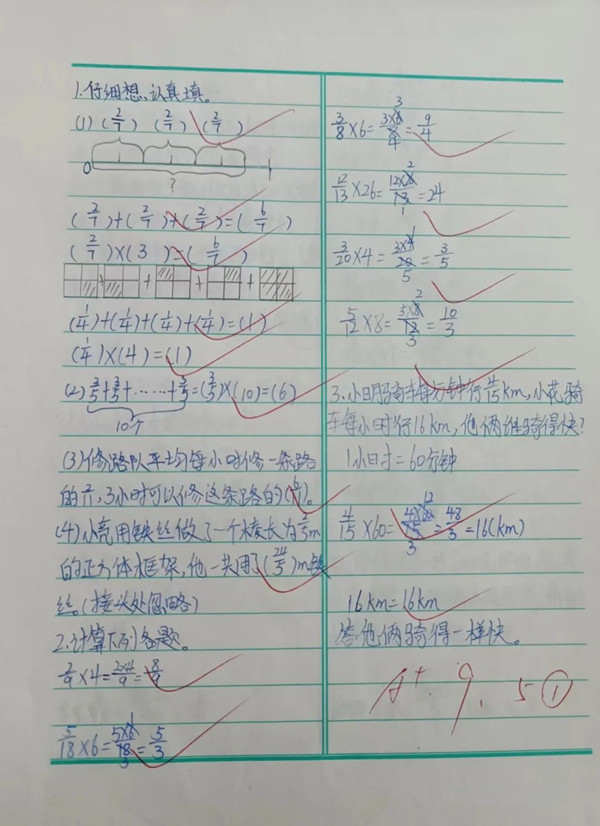 1.仔细想,认真填。
(1) (2/7) (2/7) (2/7)
0 1
?
(2/7)+(2/7)+(2/7)=(6/7)
(2/7)×(3)=(6/7)
+ + + +
(1/4)+(1/4)+(1/4)+(1/4)=(1)
(1/4)×(4)=(1)
(2) 3/5+3/5+……+3/5=(3/5)×(10)=(6)
10个
(3)修路队平均每小时修一条路
的 ,3小时可以修这条路的( )。
(4)小亮用铁丝做了一个棱长为2/5m
的正方体框架,他一共用了(24/5)m铁
丝。(接头处忽略)
2.计算下列各题。
2/9×4=2×4/9=8/9
5/18×6=5×6/18=5/3
1
3
3/8×6=3×6/8=9/4
3
4
12/13×26=12×26/13=24
2
1
3/20×4=3×4/20=3/5
1
5
5/12×8=5×8/12=10/3
2
3
3.小明骑车每分钟行4/15km,小花骑
车每小时行16km,他俩谁骑得快?
1小时=60分钟
4/15×60=4×60/15=48/3=16(km)
12
3
16km=16km
答:他俩骑得一样快。
A+ 9.5 ①